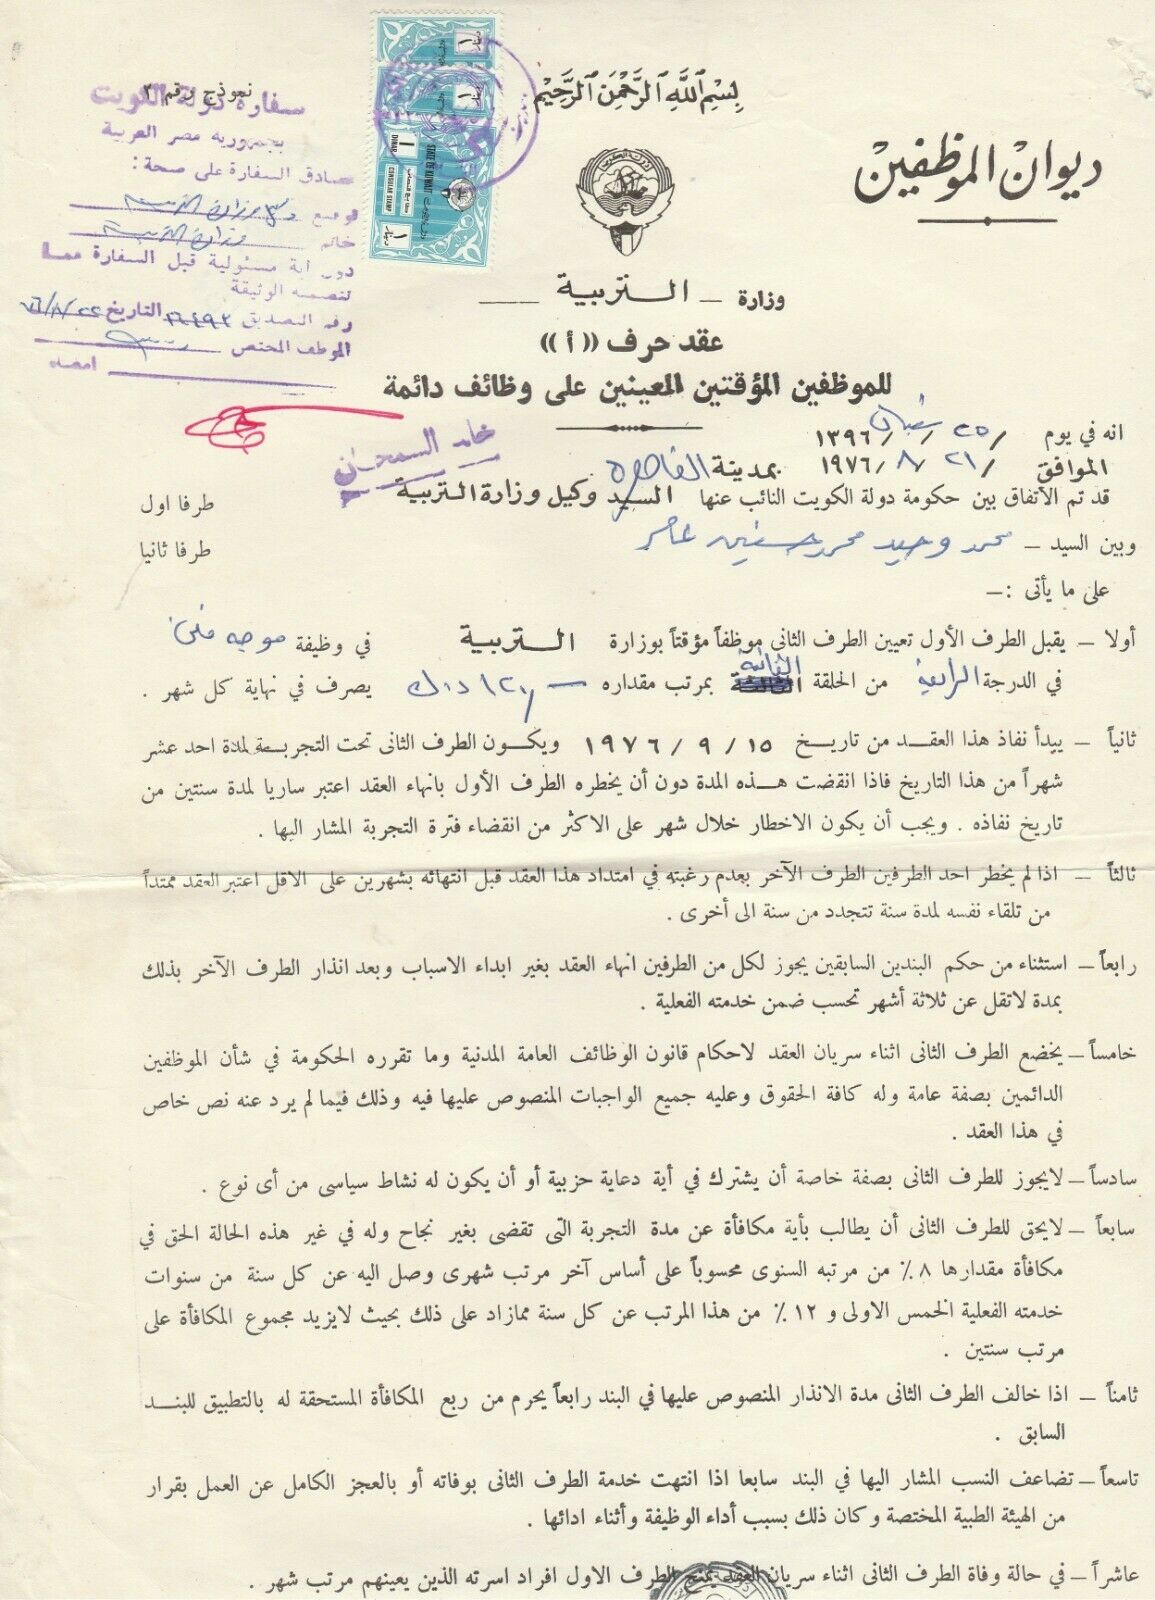 بسم الله الرحمن الرحيم
ديوان الموظفين
نموذج رقم ٣
سفارة دولة الكويت
بجمهورية مصر العربية
تصادق السفارة على صحة :
توقيع
خاتم وزارة التربية
دون اية مسئولية قبل السفارة عما
تتضمنه الوثيقة
رقم التصديق التاريخ ٧٦/٨/٢٢
الموظف المختص
امضاء
١ دينار
١ دينار
1 DINAR
STATE OF KUWAIT
CONSULAR STAMP
١ دينار
وزارة – التربية
عقد حرف ((أ))
للموظفين المؤقتين المعينين على وظائف دائمة
خالد السمحان
انه في يوم / ٢٥ / شعبان / ١٣٩٦
الموافق / ٢١ / ٨ / ١٩٧٦ بمدينة القاهرة
قد تم الاتفاق بين حكومة دولة الكويت النائب عنها السيد وكيل وزارة التربية طرفا اول
وبين السيد – محمد وحيد محمد حسنين عامر طرفا ثانيا
على ما يأتى :–
أولا – يقبل الطرف الأول تعيين الطرف الثانى موظفاً مؤقتاً بوزارة التربية في وظيفة موجه فنى
في الدرجة الرابعة من الحلقة الثانية بمرتب مقداره – /١٢١ د.ك يصرف في نهاية كل شهر .
ثانياً – يبدأ نفاذ هذا العقد من تاريخ ١٥ / ٩ / ١٩٧٦ ويكون الطرف الثانى تحت التجربة لمدة احد عشر
شهراً من هذا التاريخ فاذا انقضت هذه المدة دون أن يخطره الطرف الأول بانهاء العقد اعتبر ساريا لمدة سنتين من
تاريخ نفاذه . ويجب أن يكون الاخطار خلال شهر على الاكثر من انقضاء فترة التجربة المشار اليها .
ثالثاً – اذا لم يخطر احد الطرفين الطرف الآخر بعدم رغبته في امتداد هذا العقد قبل انتهائه بشهرين على الاقل اعتبر العقد ممتداً
من تلقاء نفسه لمدة سنة تتجدد من سنة الى أخرى .
رابعاً – استثناء من حكم البندين السابقين يجوز لكل من الطرفين انهاء العقد بغير ابداء الاسباب وبعد انذار الطرف الآخر بذلك
بمدة لاتقل عن ثلاثة أشهر تحسب ضمن خدمته الفعلية .
خامساً – يخضع الطرف الثانى اثناء سريان العقد لاحكام قانون الوظائف العامة المدنية وما تقرره الحكومة في شأن الموظفين
الدائمين بصفة عامة وله كافة الحقوق وعليه جميع الواجبات المنصوص عليها فيه وذلك فيما لم يرد عنه نص خاص
في هذا العقد .
سادساً – لايجوز للطرف الثانى بصفة خاصة أن يشترك في أية دعاية حزبية أو أن يكون له نشاط سياسى من أى نوع .
سابعاً – لايحق للطرف الثانى أن يطالب بأية مكافأة عن مدة التجربة التى تقضى بغير نجاح وله في غير هذه الحالة الحق في
مكافأة مقدارها ٨ ٪ من مرتبه السنوى محسوباً على أساس آخر مرتب شهرى وصل اليه عن كل سنة من سنوات
خدمته الفعلية الخمس الاولى و ١٢ ٪ من هذا المرتب عن كل سنة ممازاد على ذلك بحيث لايزيد مجموع المكافأة على
مرتب سنتين .
ثامناً – اذا خالف الطرف الثانى مدة الانذار المنصوص عليها في البند رابعاً يحرم من ربع المكافأة المستحقة له بالتطبيق للبند
السابق .
تاسعاً – تضاعف النسب المشار اليها في البند سابعا اذا انتهت خدمة الطرف الثانى بوفاته أو بالعجز الكامل عن العمل بقرار
من الهيئة الطبية المختصة وكان ذلك بسبب أداء الوظيفة وأثناء ادائها .
عاشراً – في حالة وفاة الطرف الثانى اثناء سريان العقد يمنح الطرف الاول افراد اسرته الذين يعينهم مرتب شهر .